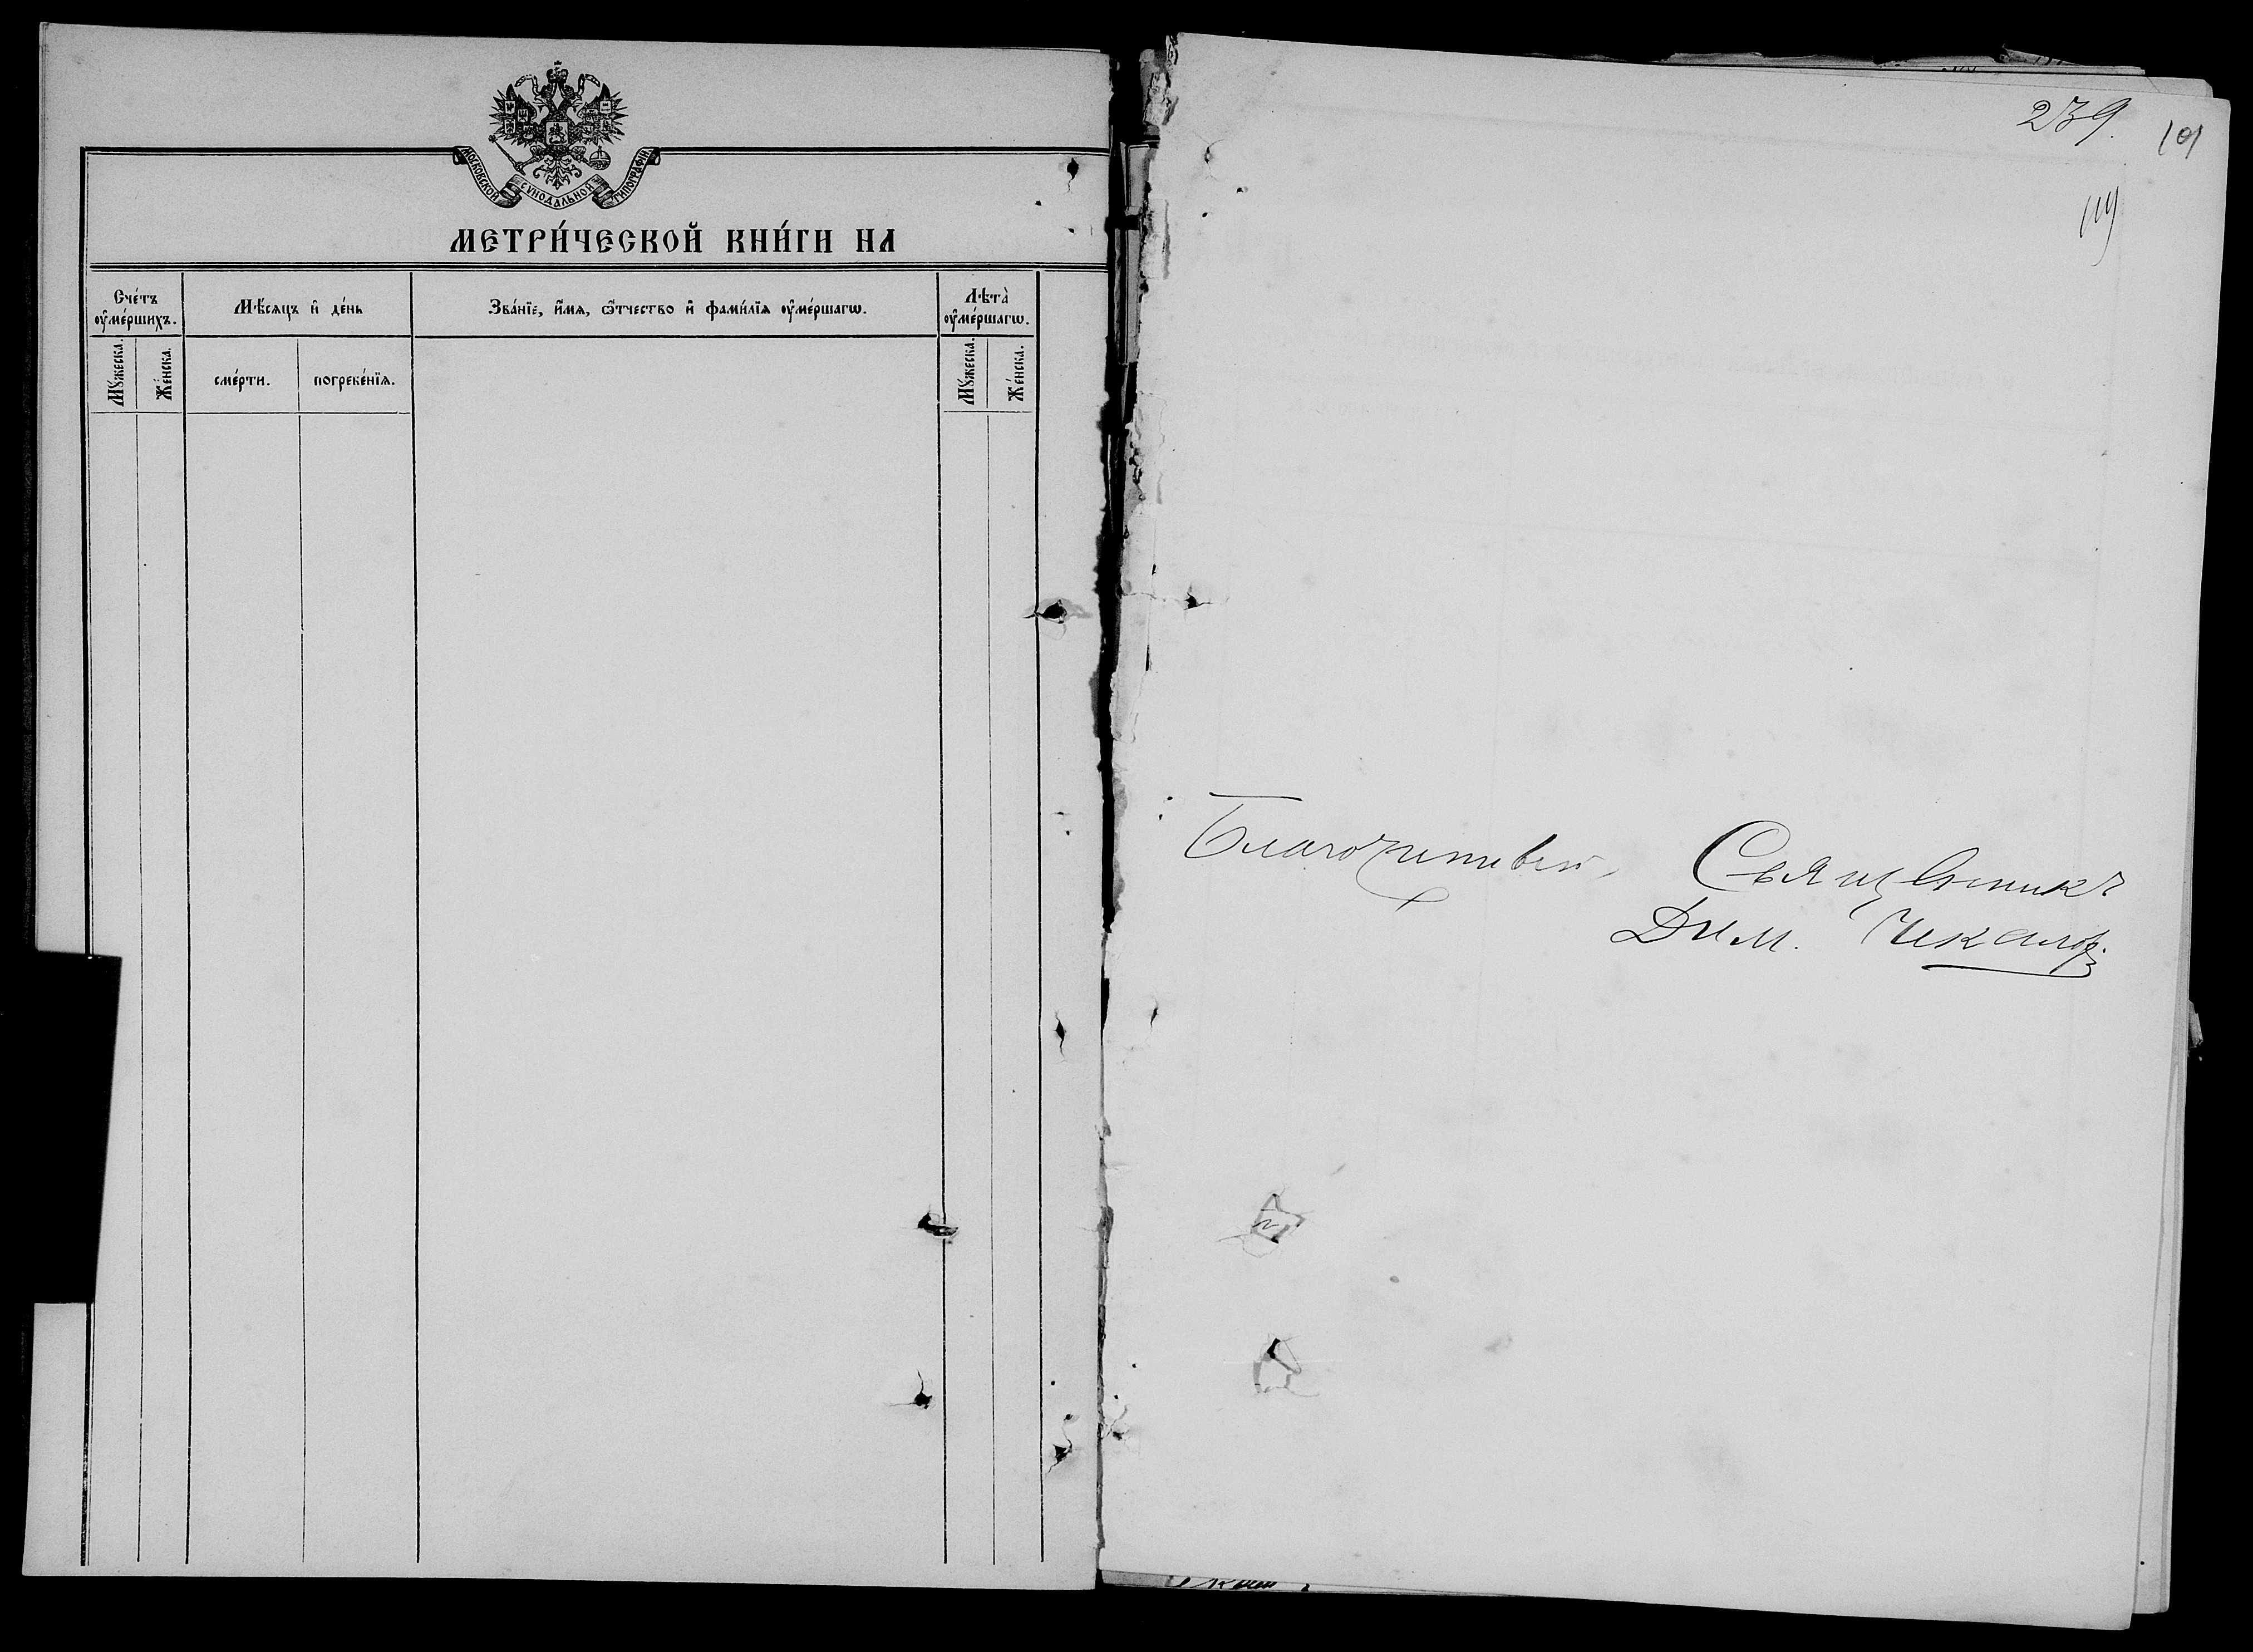 МОСКОВСКОЙ СѴНОДАЛЬНОЙ ТИПОГРАФІИ.
МЕТРИ́ЧЕСКОЙ КНИ́ГИ НА
Сче́тъ ᲂу҆ме́ршихъ.
Мѣ́сяцъ и҆ де́нь
Зва́нїе, и҆́мя, ѻ҆́тчество и҆ фами́лїя ᲂу҆ме́ршагѡ.
Лѣта̀ ᲂу҆ме́ршагѡ.
Мꙋ́жеска.
Же́нска.
сме́рти.
погребе́нїя.
Мꙋ́жеска.
Же́нска.
239.
101
119
Благочинный, Священникъ
Дим. Чекаловъ